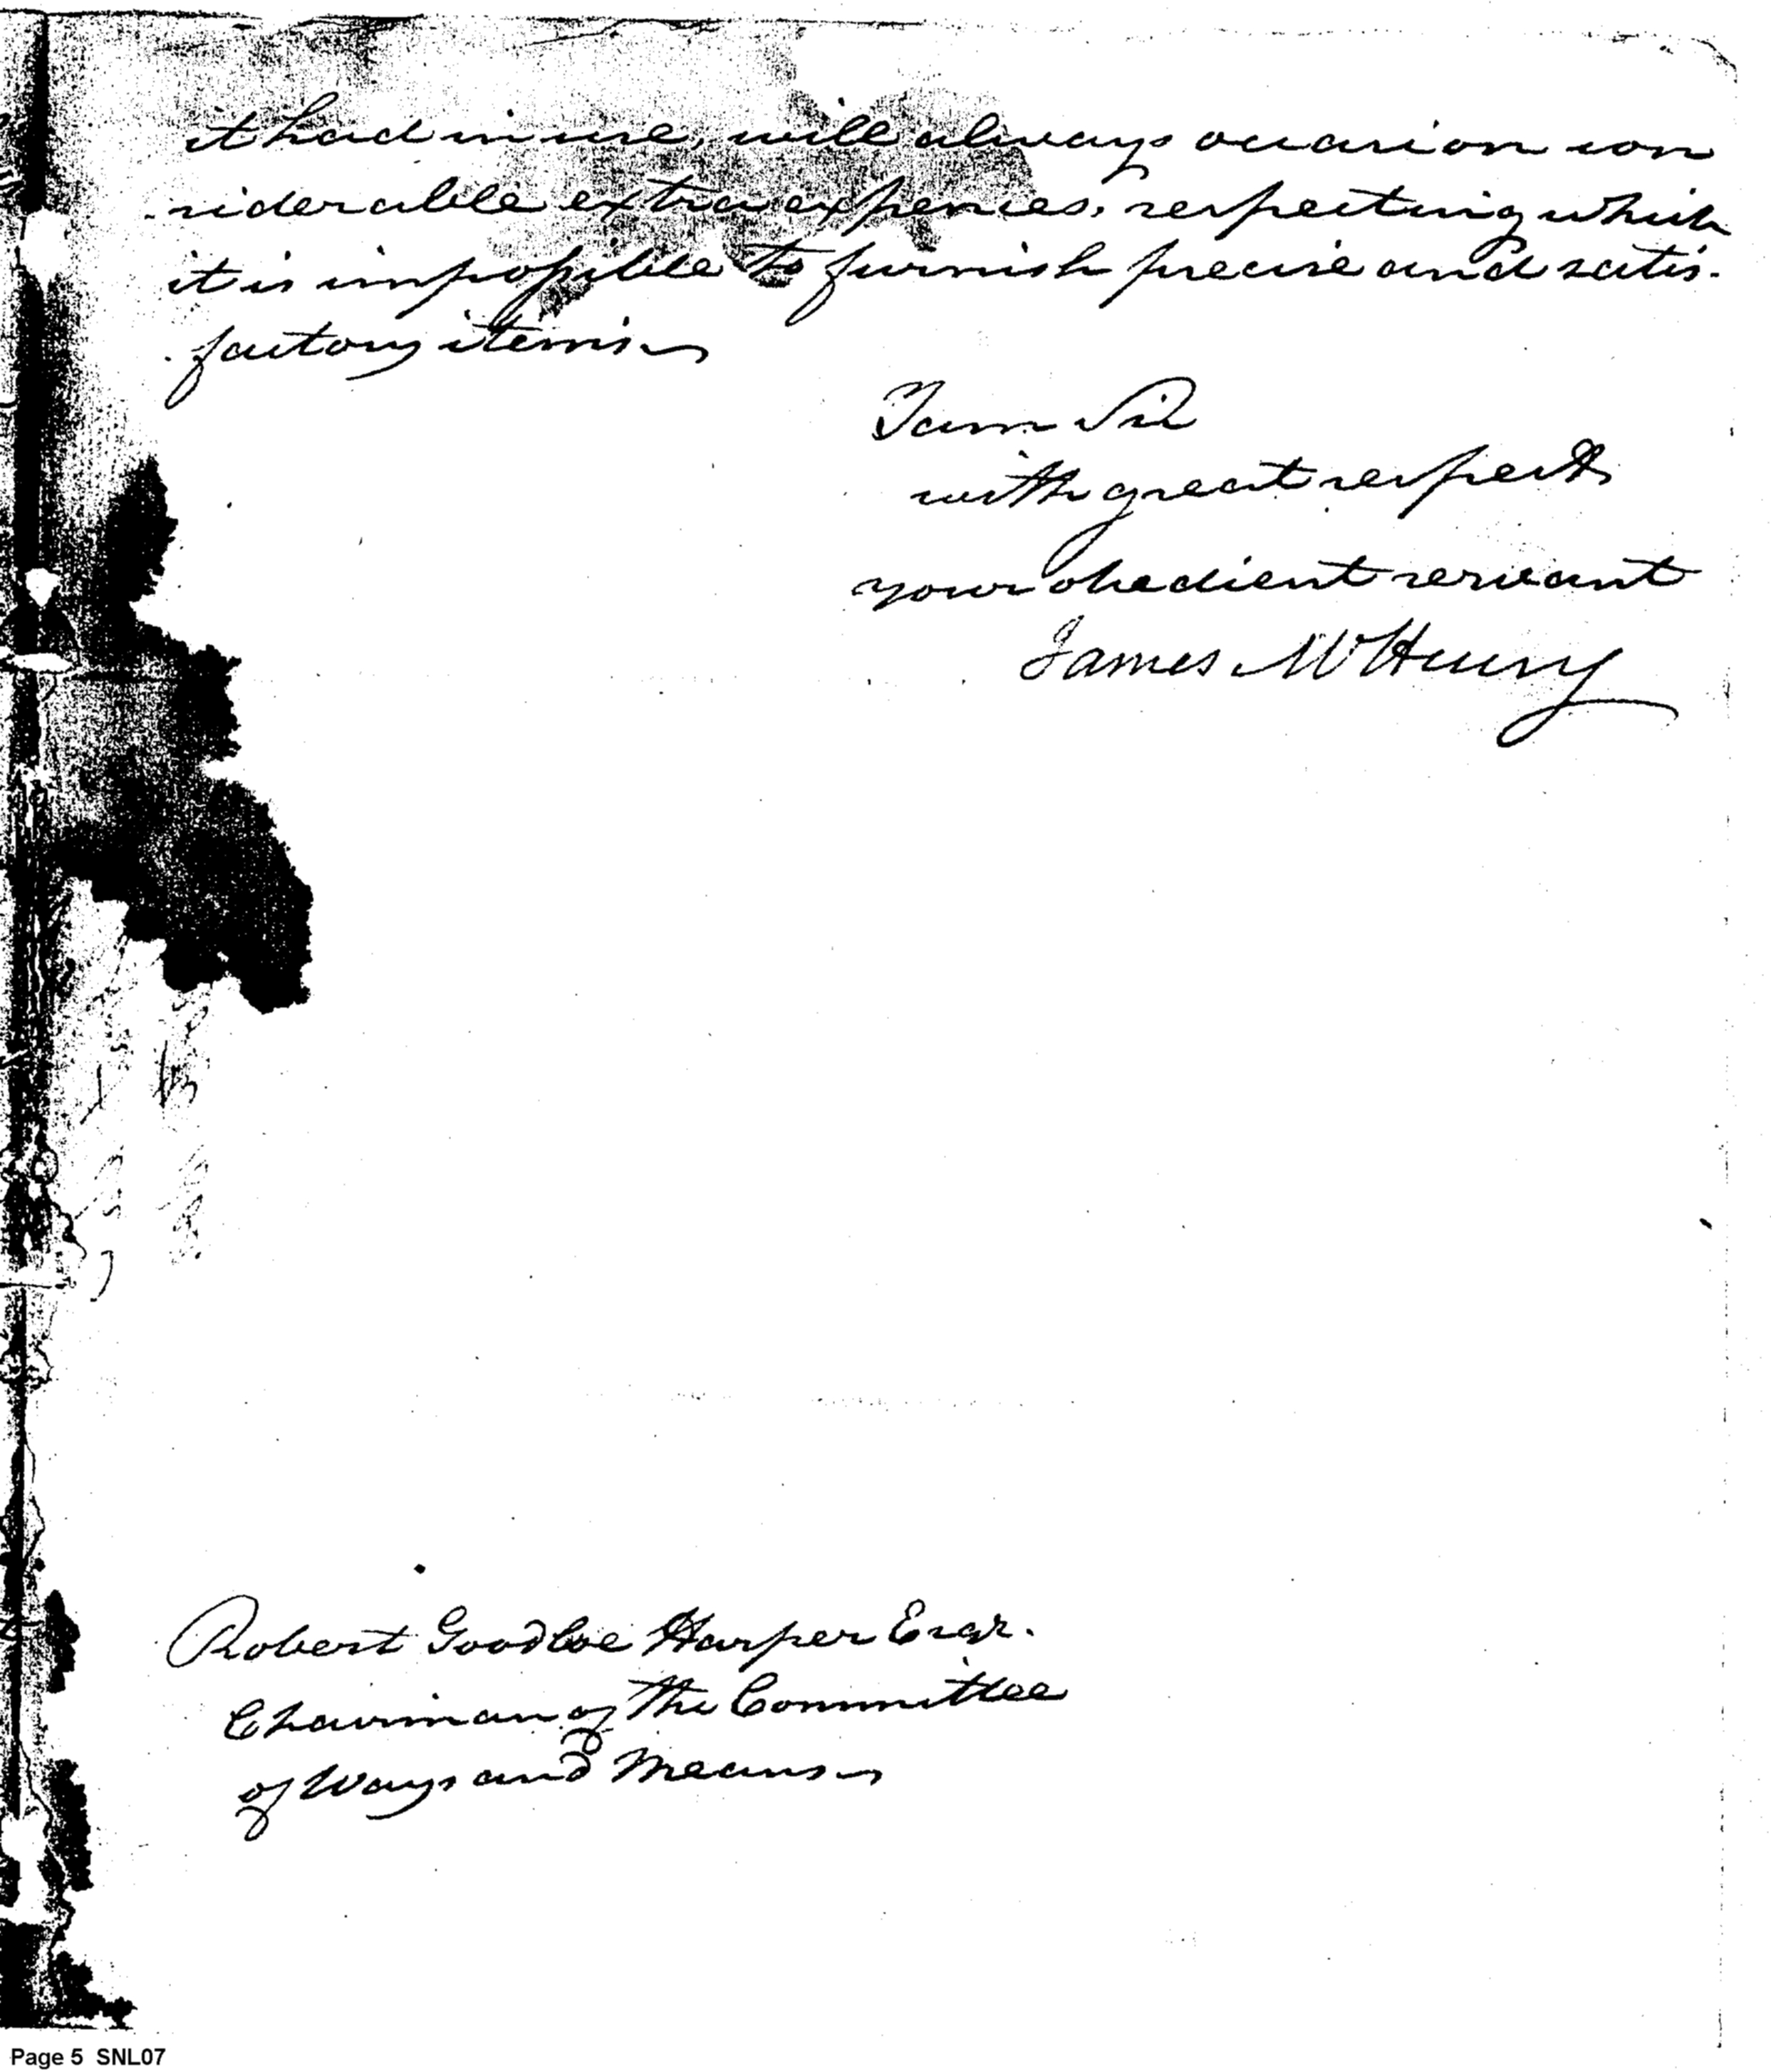 it had in use, will always occasion con
-siderable extra expenses, respecting which
it is impossible to furnish precise and satis-
-factory items.
I am Sir
with great respect,
your obedient servant
James McHenry
Robert Goodloe Harper Esqr.
Chairman of the Committee
of Ways and Means.
Page 5 SNL07